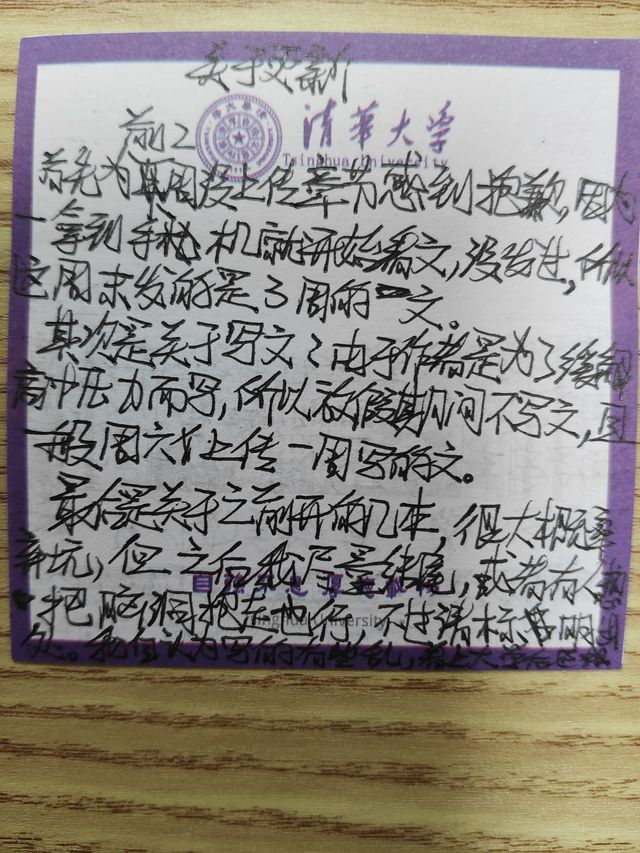 关于更新
清華大学
Tsinghua University
前2
首先为周没上传章节感到抱歉,因为
一拿到手机就开始看文,没发过,所以
这周末发的是3周的文。
其次是关于写文:由于作者是为了缓解
高中压力而写,所以放假期间不写文,且
一般周六上传一周写的文。
最后是关于之前开的几本,很大概率
弃坑,但之后我尽量结尾,或者有人想
把脑洞抱走也行,不过请标明出
处。我自认为写的有些乱,若上大学后
Tsinghua University